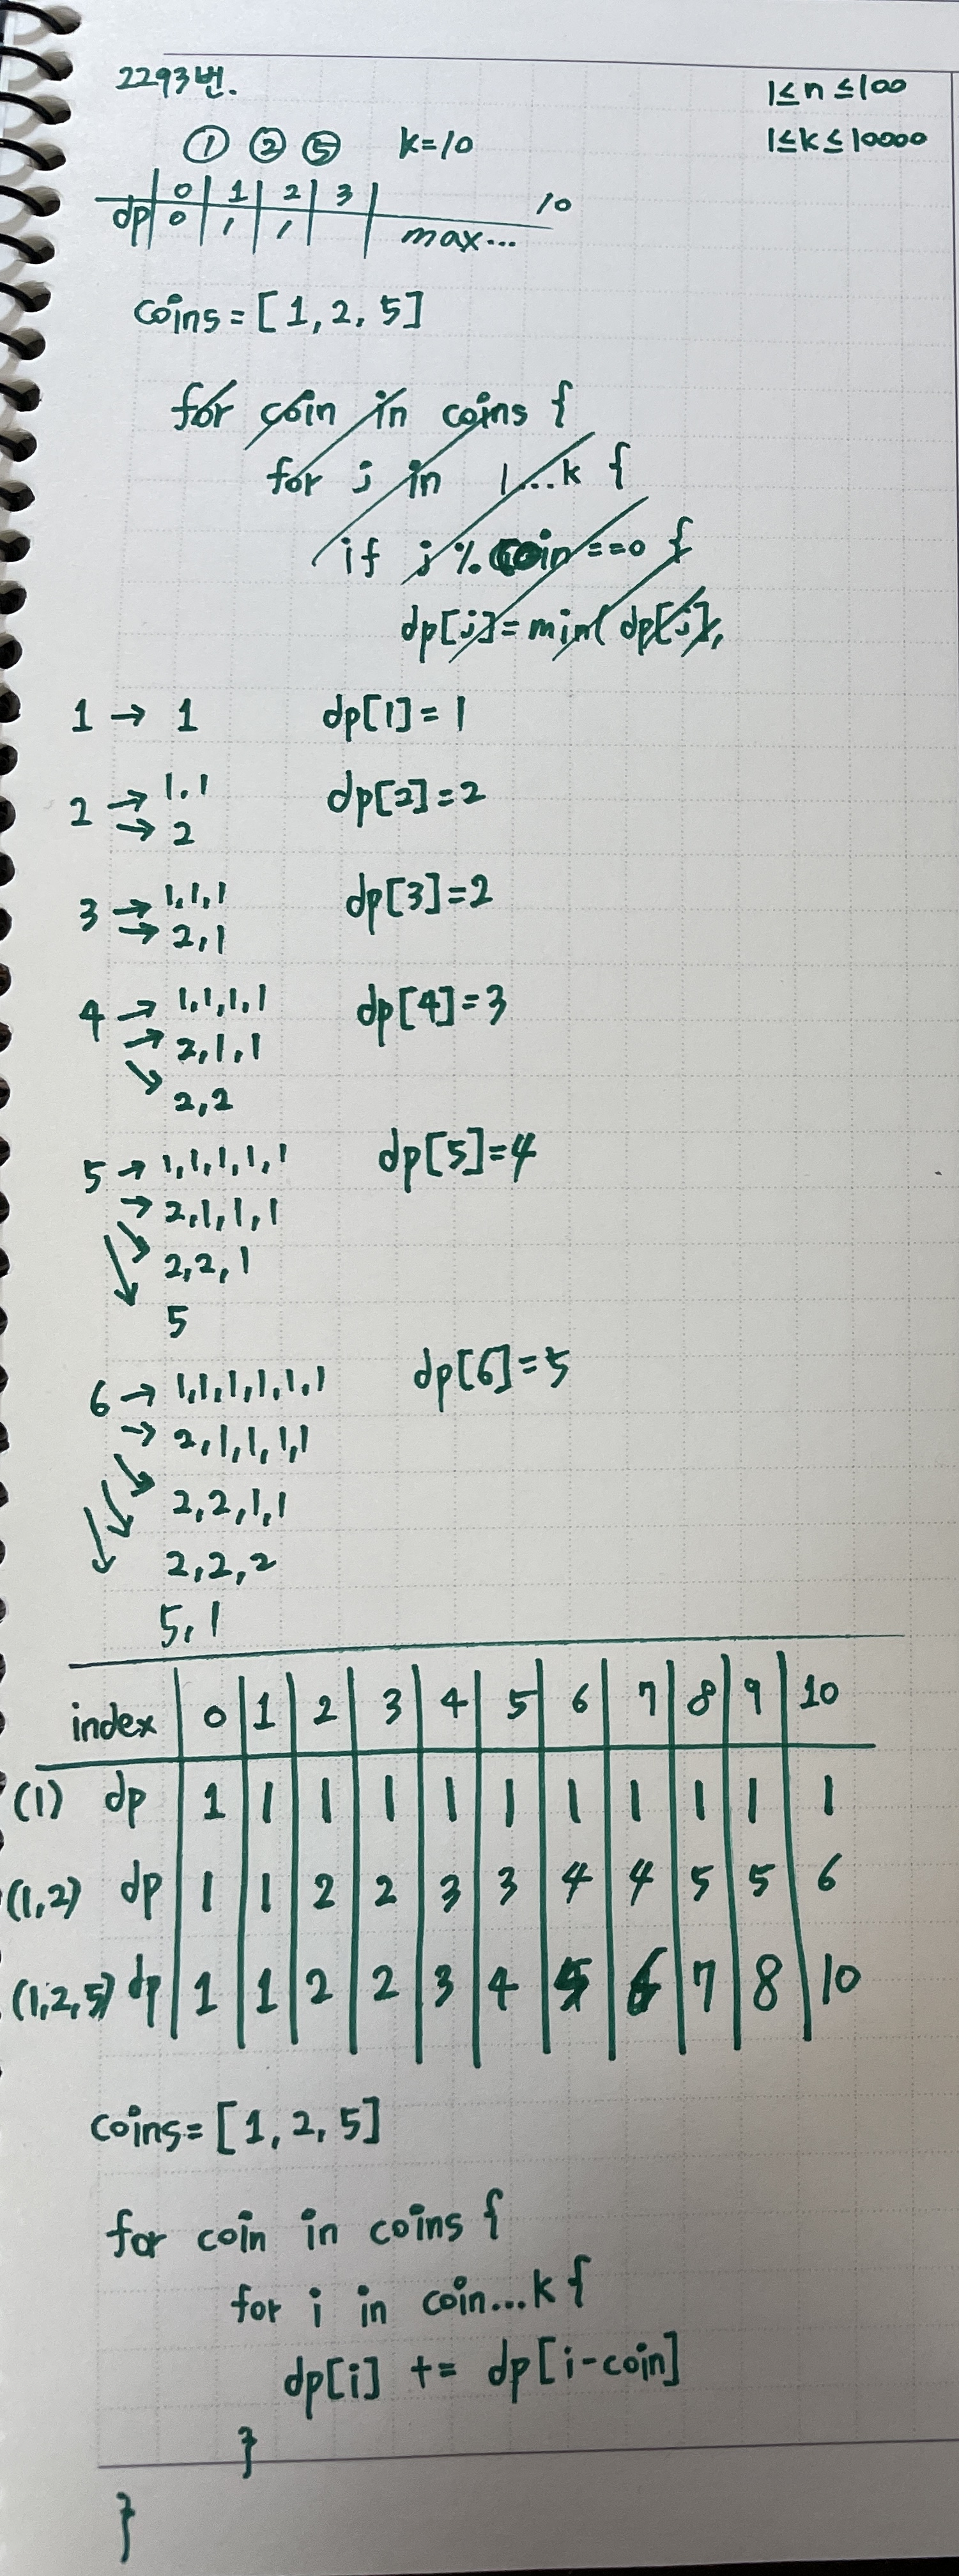 2293번.
1≤n≤100
① ② ⑤ k=10
1≤k≤10000
0 1 2 3 10
dp 0 1 1 max...
coins = [1, 2, 5]
for coin in coins {
for j in 1...k {
if j % coin ==0 {
dp[j]=min( dp[j],
1 → 1 dp[1]=1
2 → 1.1 dp[2]=2
→ 2
3 → 1,1,1 dp[3]=2
→ 2,1
4 → 1,1,1,1 dp[4]=3
→ 2,1,1
↘ 2,2
5 → 1,1,1,1,1 dp[5]=4
→ 2,1,1,1
↘ 2,2,1
↘ 5
6 → 1,1,1,1,1,1 dp[6]=5
→ 2,1,1,1,1
↘ 2,2,1,1
↘ 2,2,2
↘ 5,1
index 0 1 2 3 4 5 6 7 8 9 10
(1) dp 1 1 1 1 1 1 1 1 1 1 1
(1,2) dp 1 1 2 2 3 3 4 4 5 5 6
(1,2,5) dp 1 1 2 2 3 4 5 6 7 8 10
coins= [1, 2, 5]
for coin in coins {
for i in coin...k {
dp[i] += dp[i-coin]
}
}